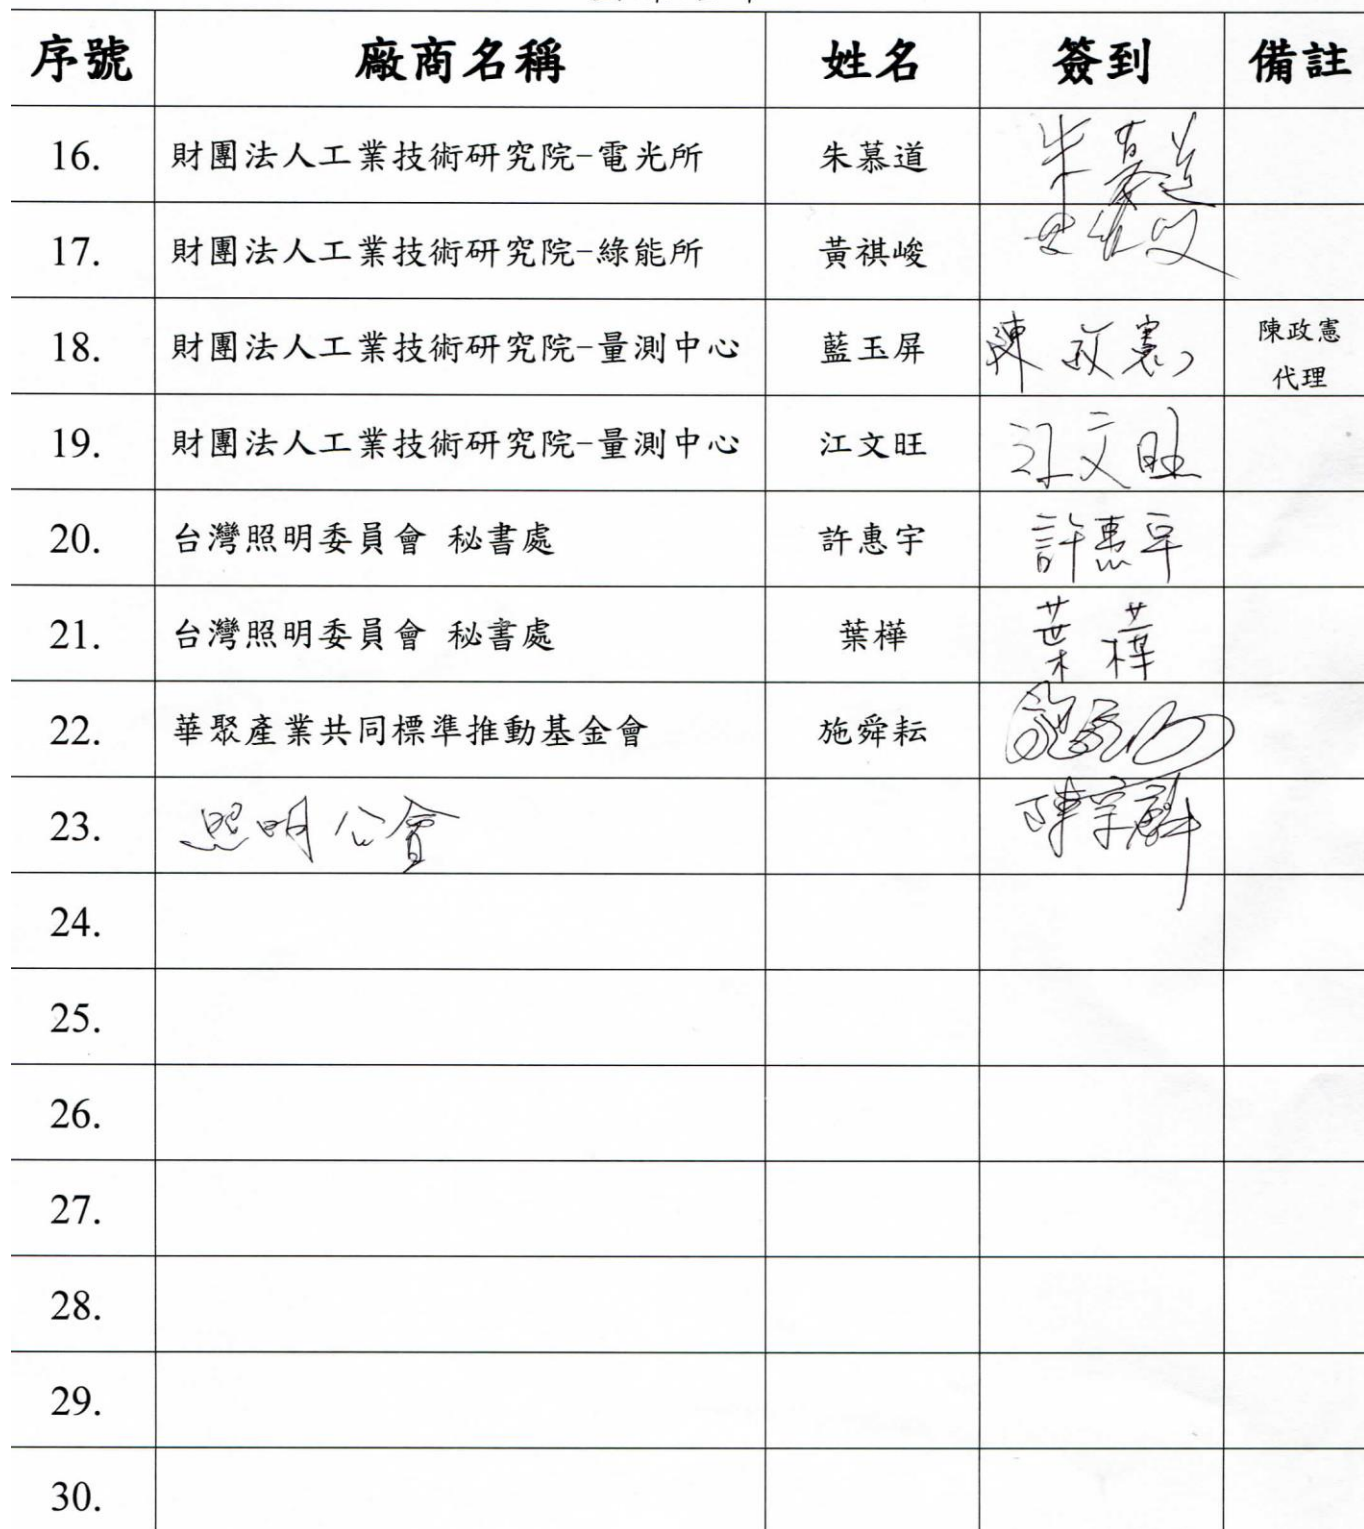 序號 廠商名稱 姓名 簽到 備註
16. 財團法人工業技術研究院-電光所 朱慕道 朱慕道
17. 財團法人工業技術研究院-綠能所 黃祺峻
18. 財團法人工業技術研究院-量測中心 藍玉屏 陳政憲 陳政憲
代理
19. 財團法人工業技術研究院-量測中心 江文旺 江文旺
20. 台灣照明委員會 秘書處 許惠宇 許惠宇
21. 台灣照明委員會 秘書處 葉樺 葉樺
22. 華聚產業共同標準推動基金會 施舜耘
23. 照明公會
24.
25.
26.
27.
28.
29.
30.